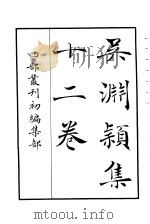 吳淵潁集
十二卷
四部叢刊初編集部